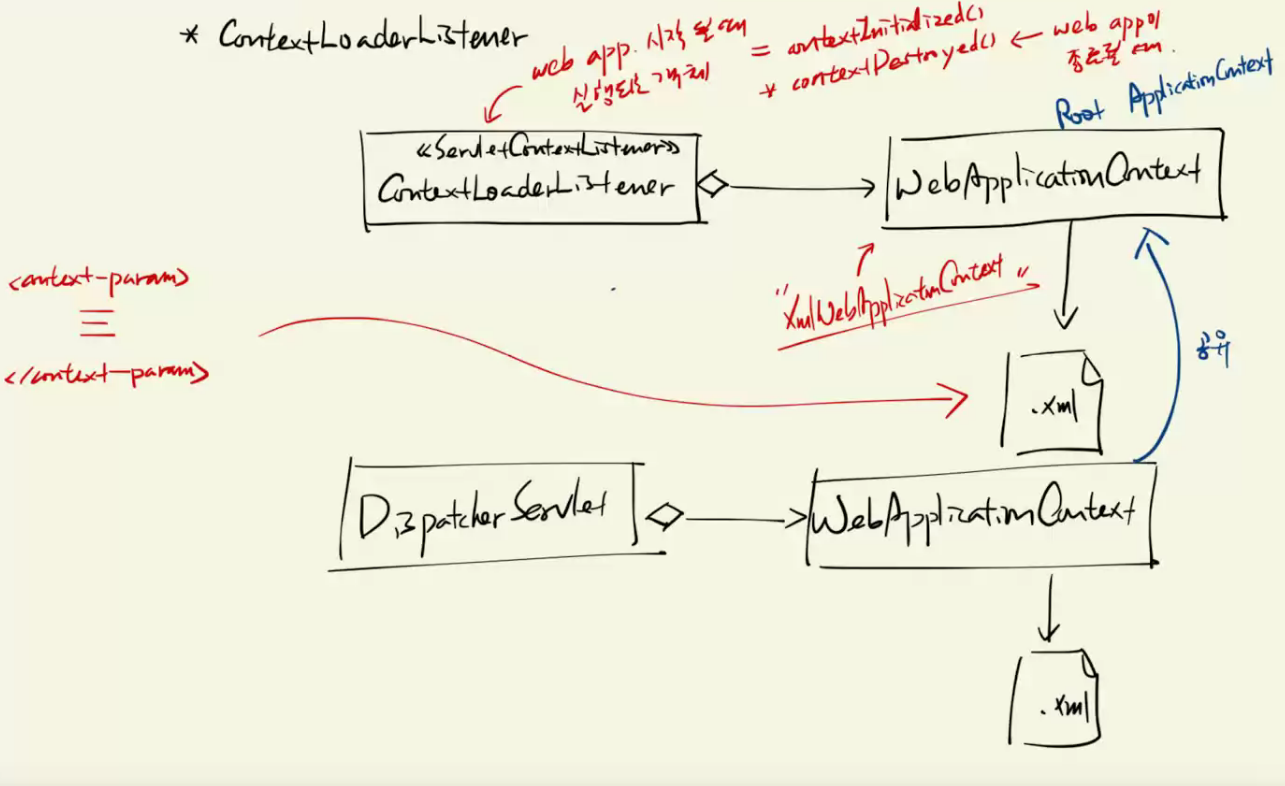 * ContextLoaderListener
web app. 시작될 때
실행되는 객체
= contextInitialized()
* contextDestroyed() ← web app이
종료될 때.
Root ApplicationContext
«ServletContextListener»
ContextLoaderListener
WebApplicationContext
"XmlWebApplicationContext"
<context-param>
</context-param>
공유
.xml
DispatcherServlet
WebApplicationContext
.xml